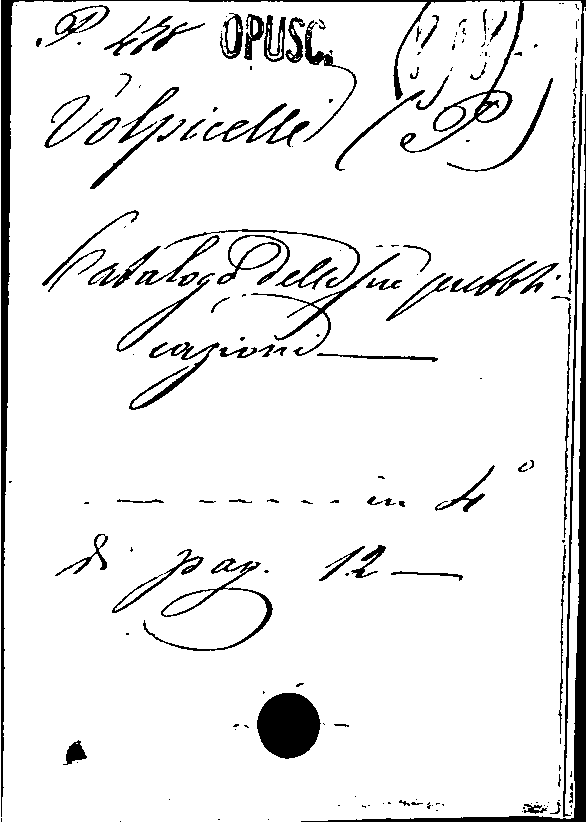 P. 478 OPUSC.
Volpicelli (P.)
Catalogo delle sue pubbli-
cazioni
in 4°
di pag. 12